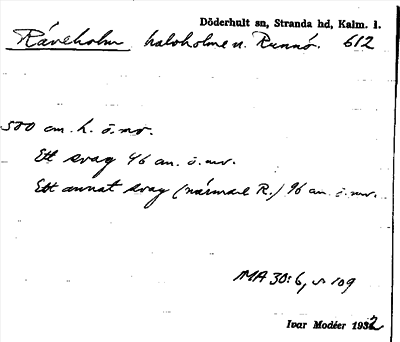 Döderhult sn, Stranda hd, Kalm. l.
Räveholm halvholme n. Runnö. 612
500 cm. h. ö. nv.
Ett svag 46 cm. ö. nv.
Ett annat svag (närmare R.) 96 cm. ö. nv.
MA 30:6, s 109
Ivar Modéer 1932